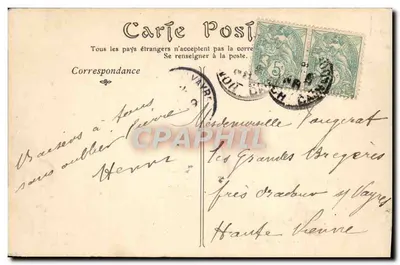 Carte Postale
Tous les pays étrangers n'acceptent pas la corre
Se renseigner à la poste.
Correspondance
VAYR
Baisers à tous
sans oublier
Henri
Mademoiselle Fougerat
Les Grandes Bregères
près Oradour s/ Vayres
Haute Vienne
CPARAMA